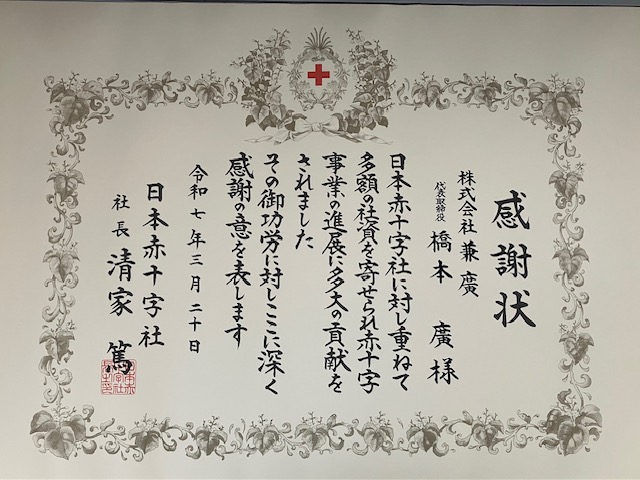 感謝状
株式会社 兼廣
代表取締役 橋本 廣 様
日本赤十字社に対し重ねて
多額の社資を寄せられ赤十字
事業の進展に多大の貢献を
されました
その御功労に対しここに深く
感謝の意を表します
令和七年三月二十日
日本赤十字社
社長 清家 篤